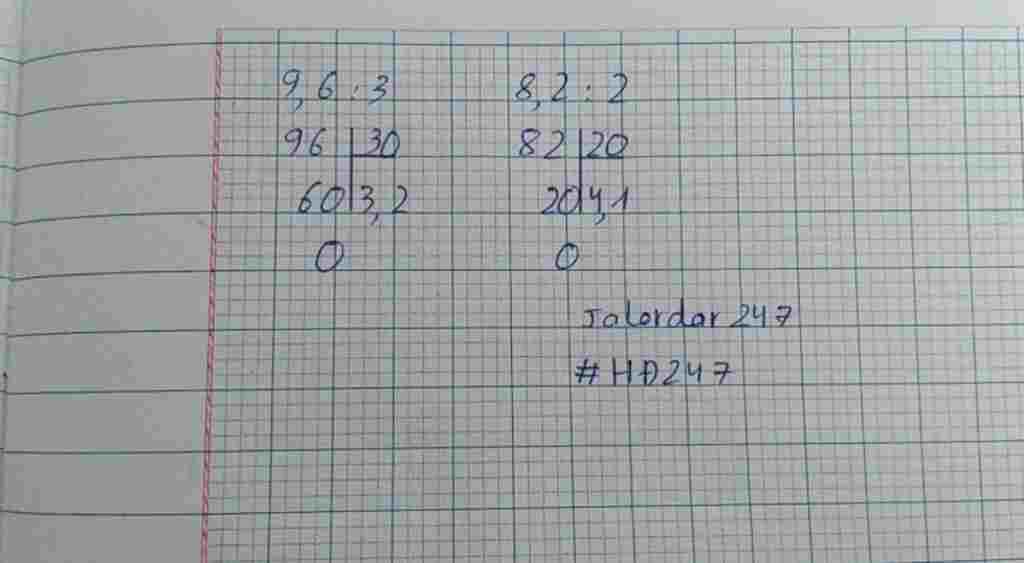 9,6 : 3
96 30
60 3,2
0
8,2 : 2
82 20
20 4,1
0
Jalordar 247
#HĐ247